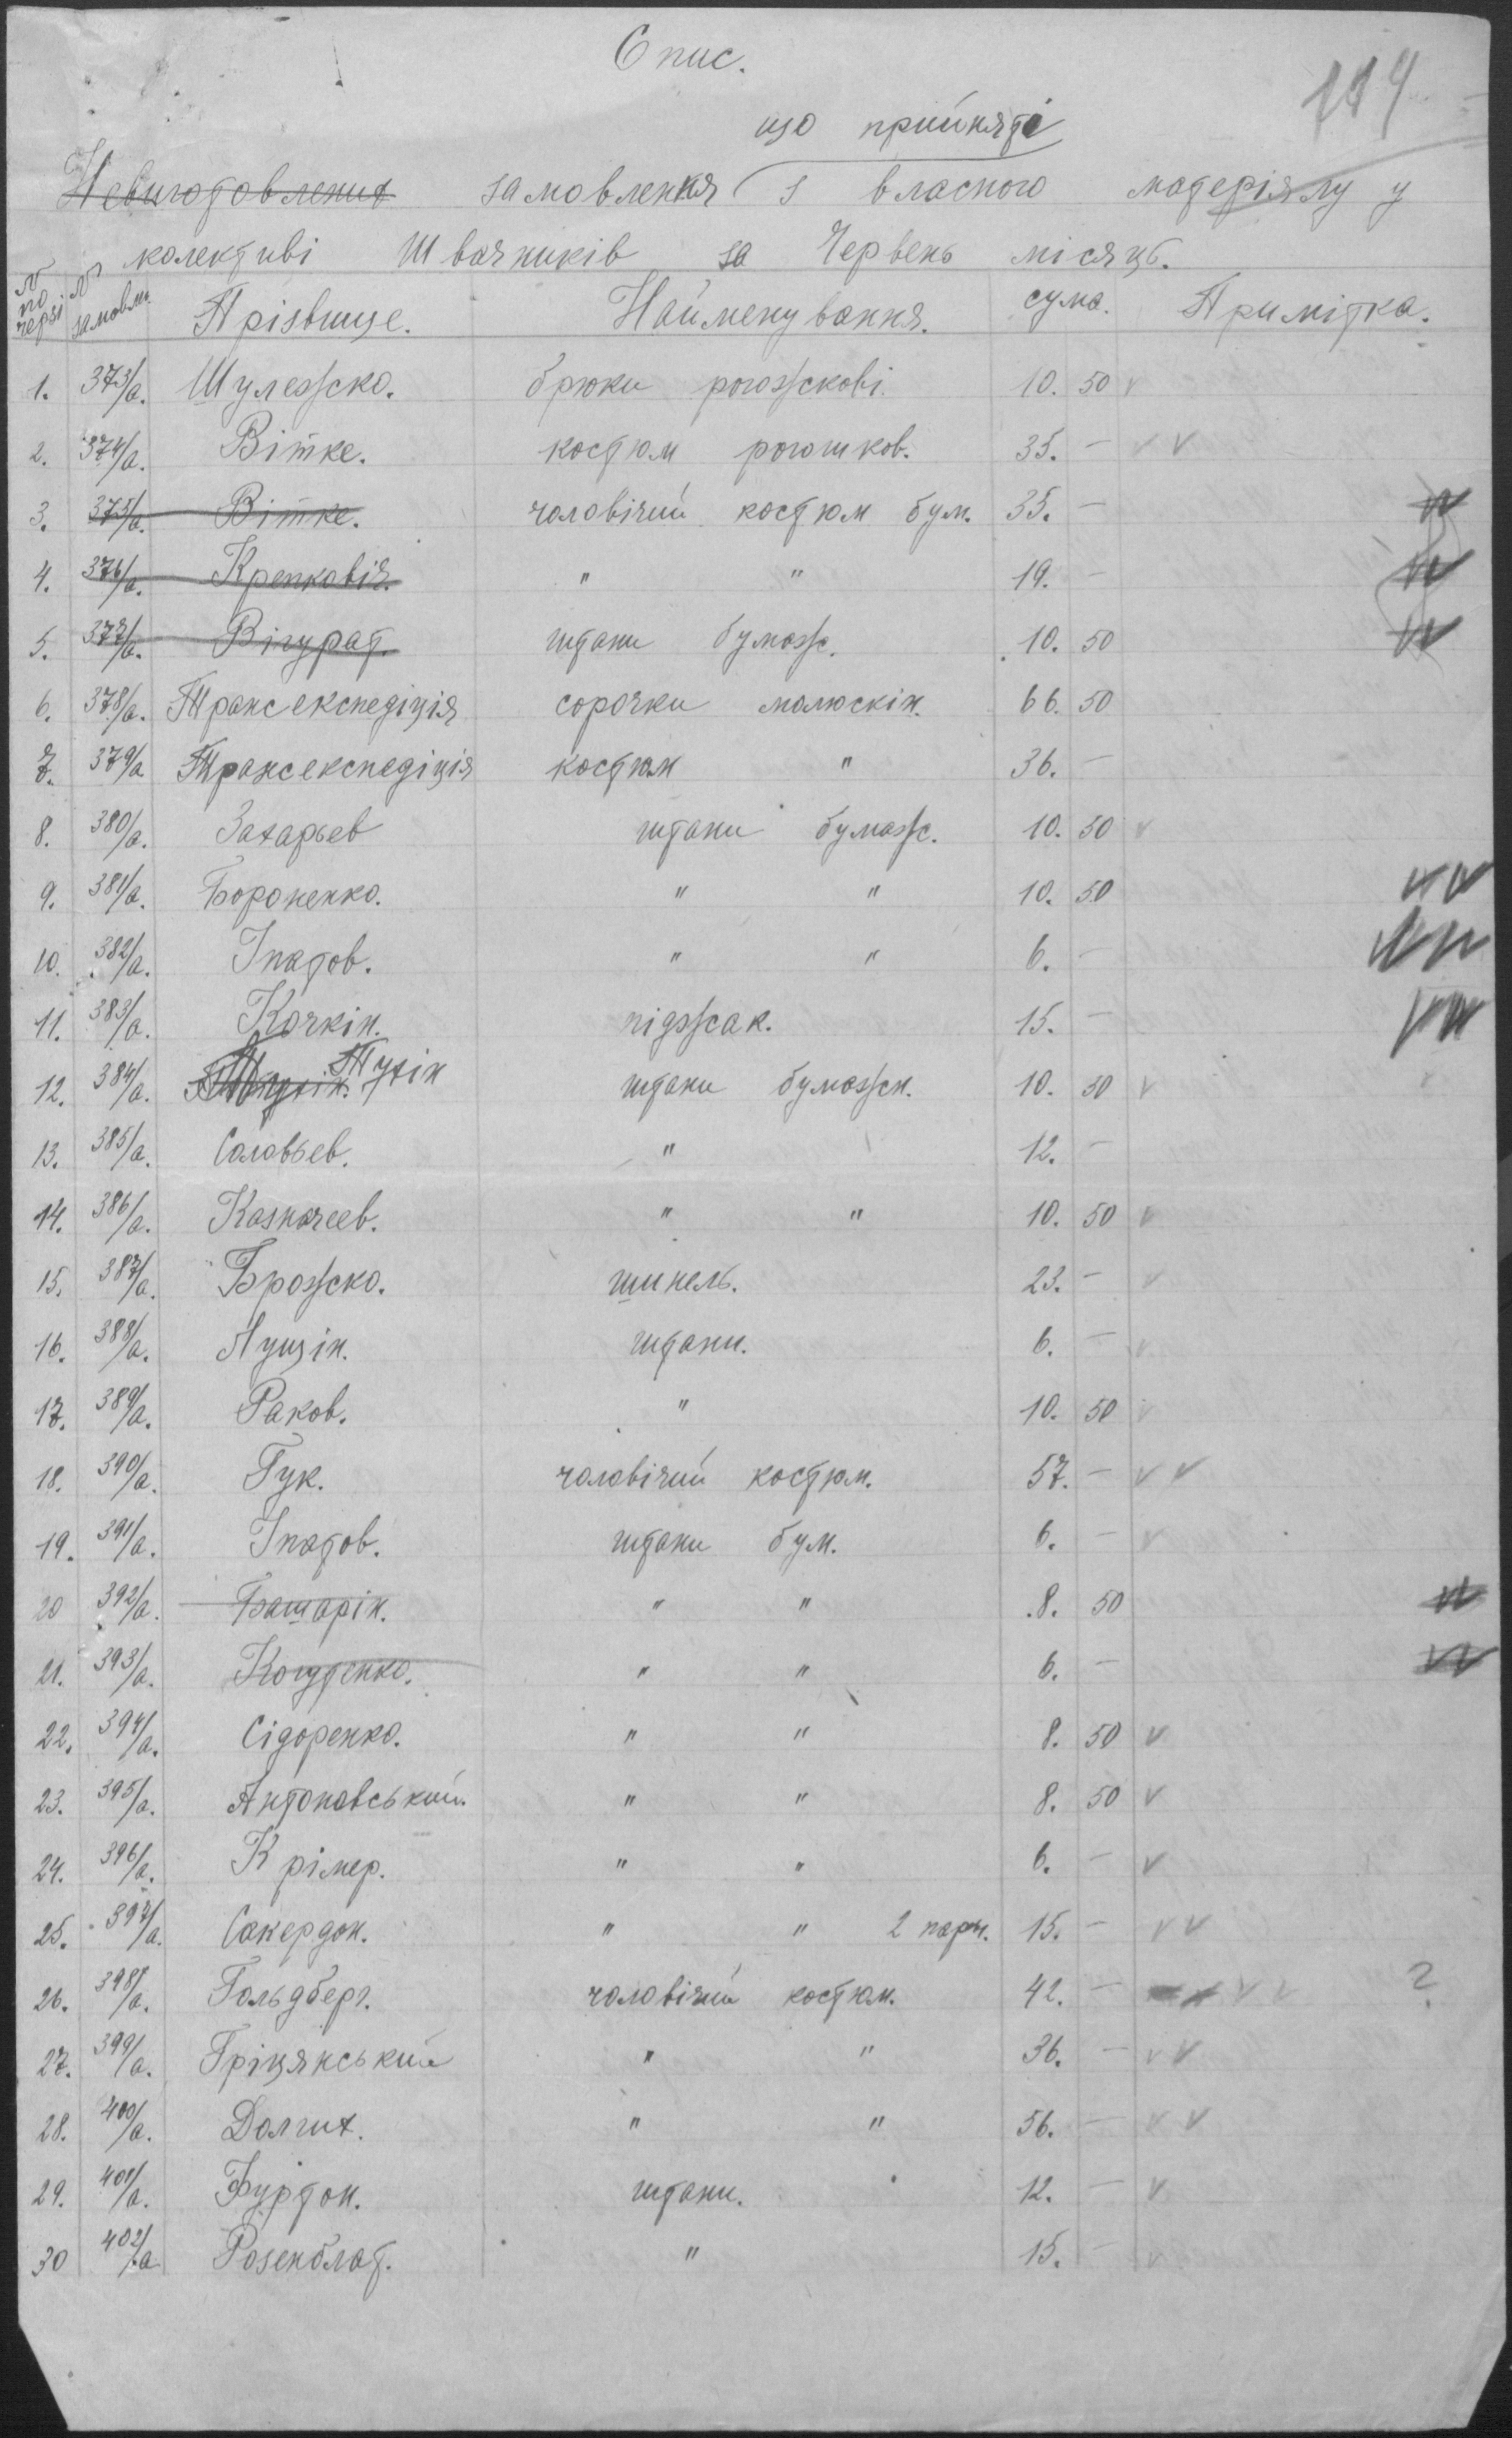 Опис.
114
що прийняті
Невиготовлених замовлення з власного матеріялу у
колективі Швачників за Червень місяць.
№ по черзі № замовл. Прізвище. Найменування. сума. Примітка.
1. 373/а. Шулежко. брюки рогожкові. 10. 50 v
2. 374/а. Вітке. костюм рогожков. 35. — v v
3. 375/а. Вітке. чоловічий костюм бум. 35. —
4. 376/а. " " 19. —
5. 377/а. Вігурат. штани бумаж. 10. 50
6. 378/а. Трансекспедіція сорочки малюскін. 66. 50
7. 379/а Трансекспедіція костюм " 36. —
8. 380/а. Захарьев штани бумаж. 10. 50 v
9. 381/а. Бороненко. " " 10. 50 v v
10. 382/а. Іпатов. " " 6. —
11. 383/а. Кочкін. піджак. 15. —
12. 384/а. Тузін штани бумажн. 10. 50 v
13. 385/а. Соловьев. " 12. —
14. 386/а. Казначеев. " " 10. 50 v
15. 387/а. Брожко. шинель. 23. — v
16. 388/а. Лущін. штани. 6. — v
17. 389/а. Раков. " 10. 50 v
18. 390/а. Гук. чоловічий костюм. 57. — v v
19. 391/а. Іпатов. штани бум. 6. — v
20 392/а. Башарін. " " 8. 50
21. 393/а. Когутенко. " " 6. —
22. 394/а. Сідоренко. " " 8. 50 v
23. 395/а. Антоновський. " " 8. 50 v
24. 396/а. Крімер. " " 6. — v
25. 397/а. Сакердон. " " 2 пары. 15. — v v
26. 398/а. Гольдберг. чоловічий костюм. 42. — v v ?
27. 399/а. Гріцянський " " 36. — v v
28. 400/а. Долгих. " " 56. — v v
29. 401/а. Буртон. штани. 12. — v
30 402/а Розенблат. " 15. — v